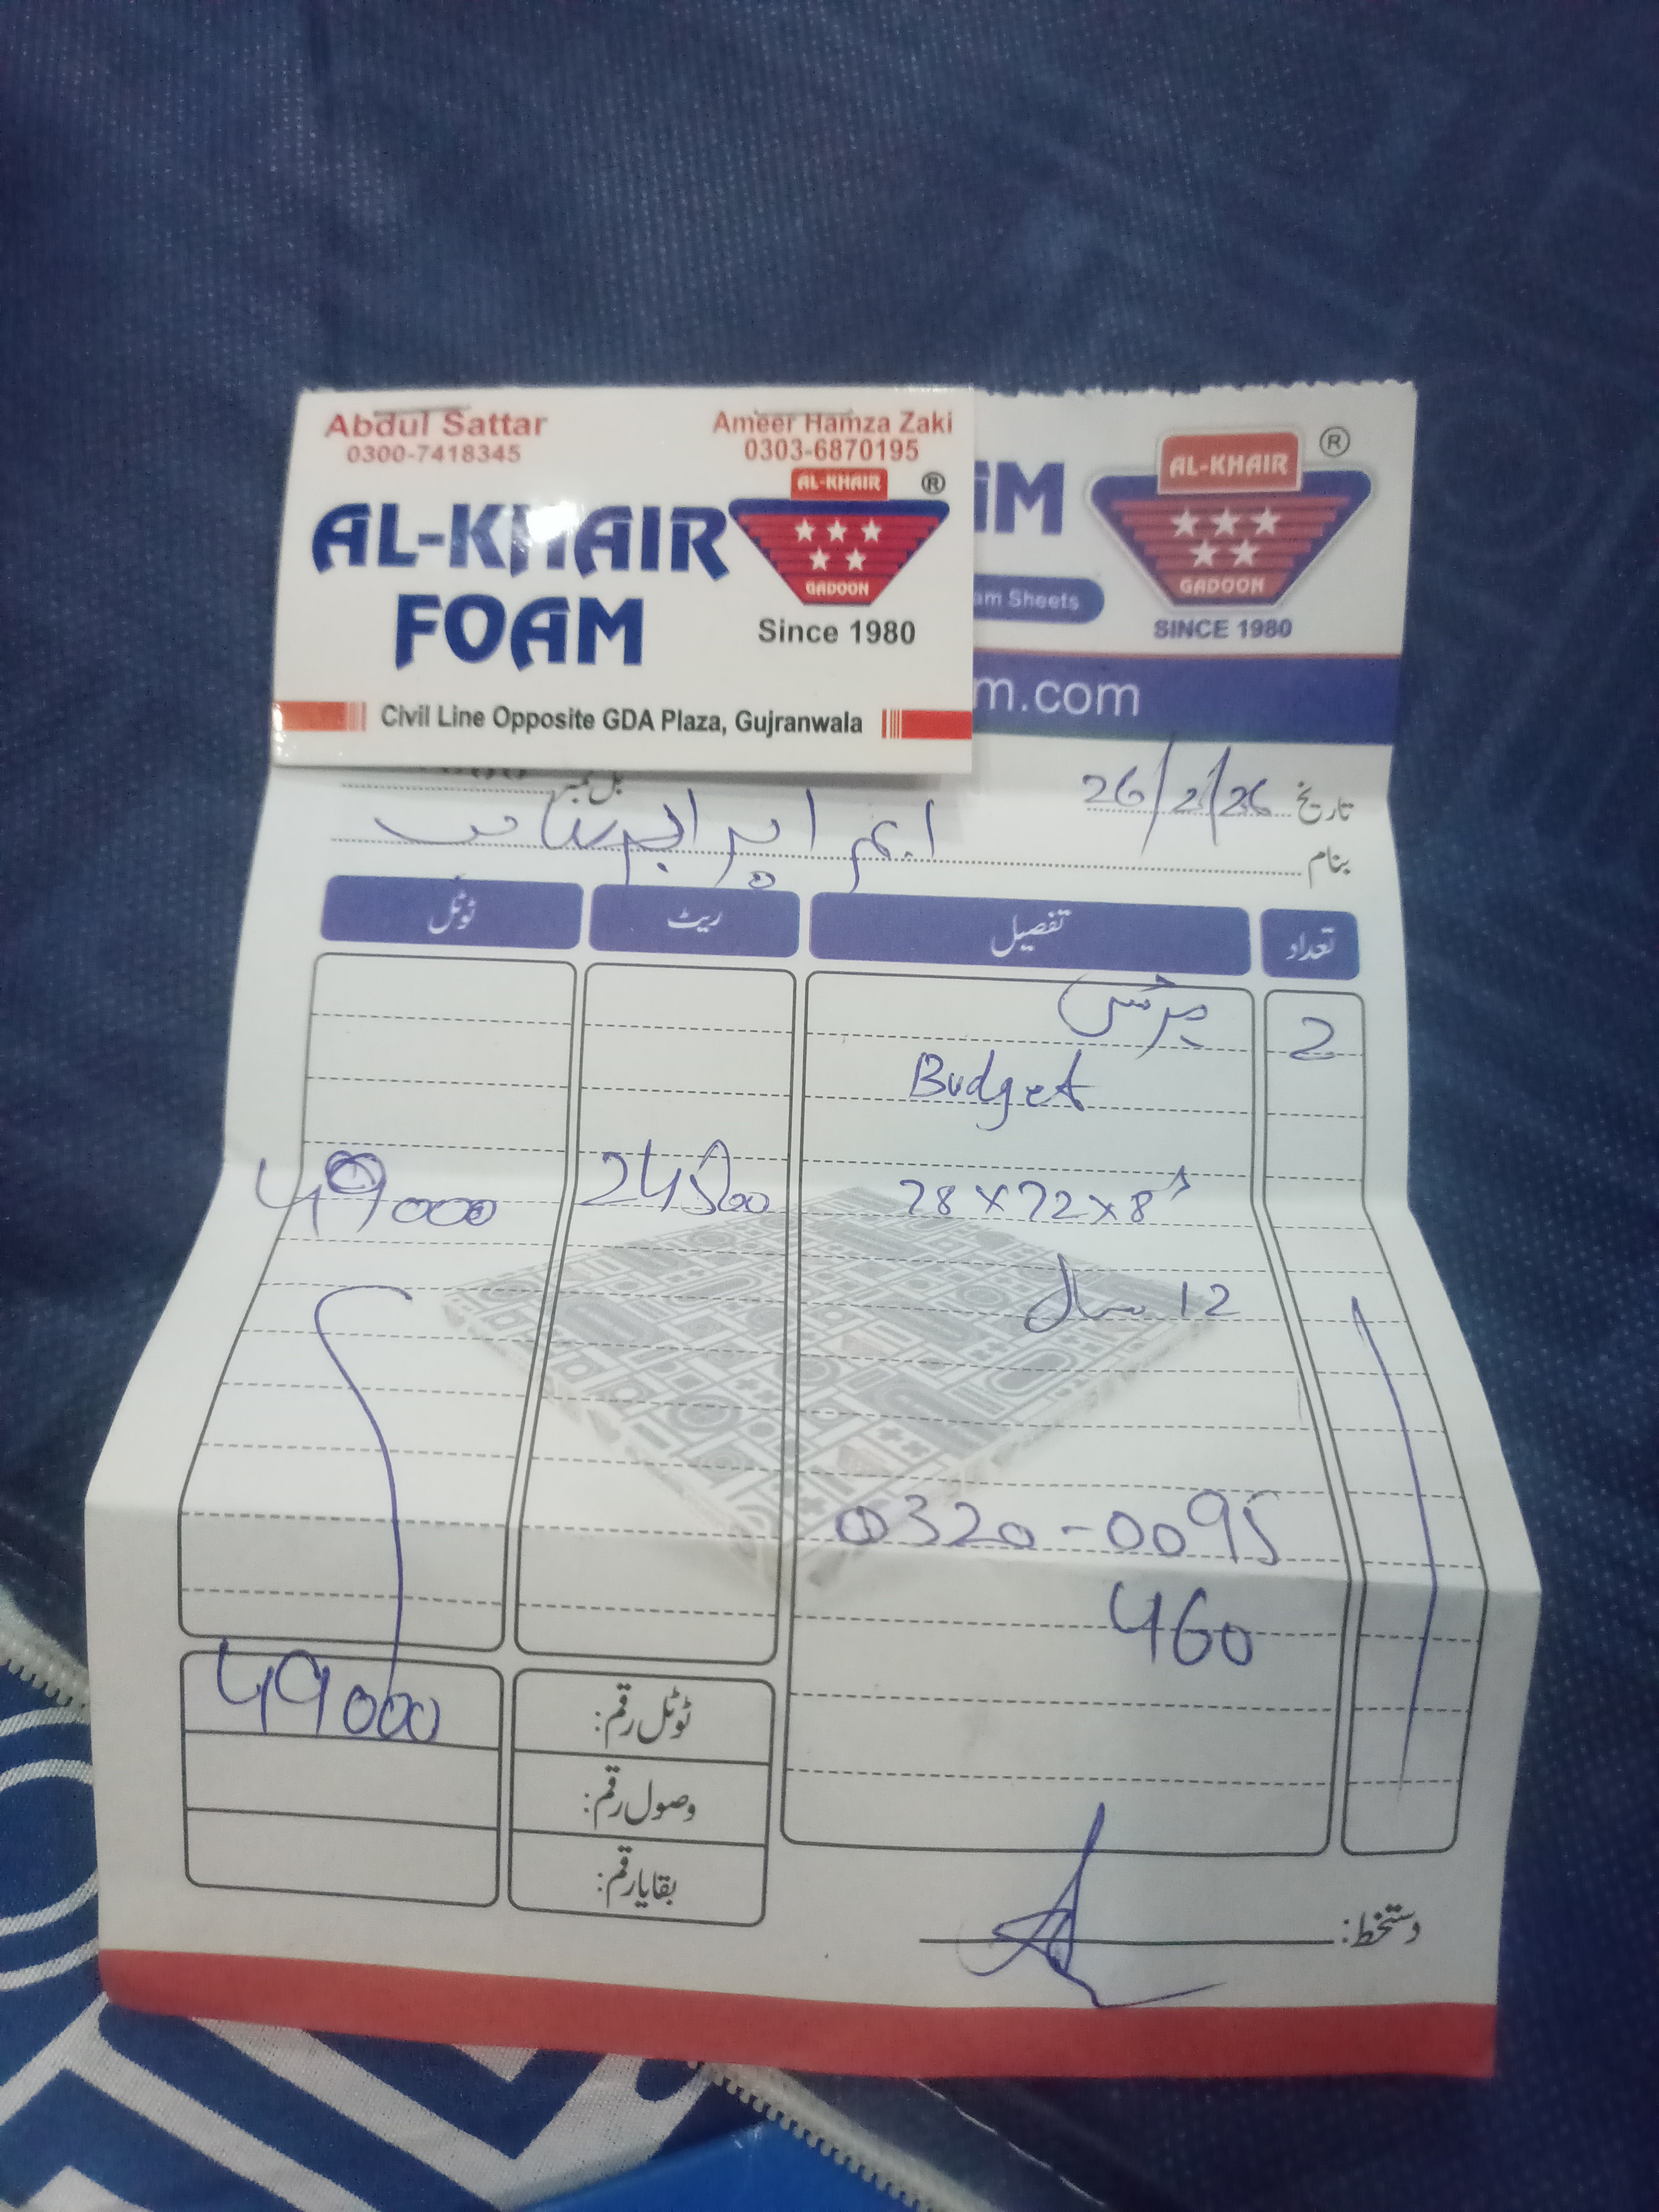 Abdul Sattar
0300-7418345
Ameer Hamza Zaki
0303-6870195
AL-KHAIR
FOAM
AL-KHAIR
®
GADOON
Since 1980
Civil Line Opposite GDA Plaza, Gujranwala
AL-KHAIR
®
GADOON
SINCE 1980
am Sheets
m.com
بل نمبر
تاریخ 26/2/26
بنام
تعداد تفصیل ریٹ ٹوٹل
2
Budget
78×72×8" 24500 49000
12 سال
0320-0095
460
ٹوٹل رقم: 49000
وصول رقم:
بقایا رقم:
دستخط: